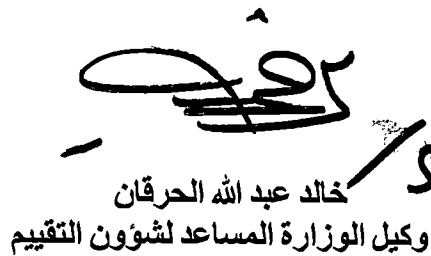 خالد عبد الله الحرقان
وكيل الوزارة المساعد لشؤون التقييم